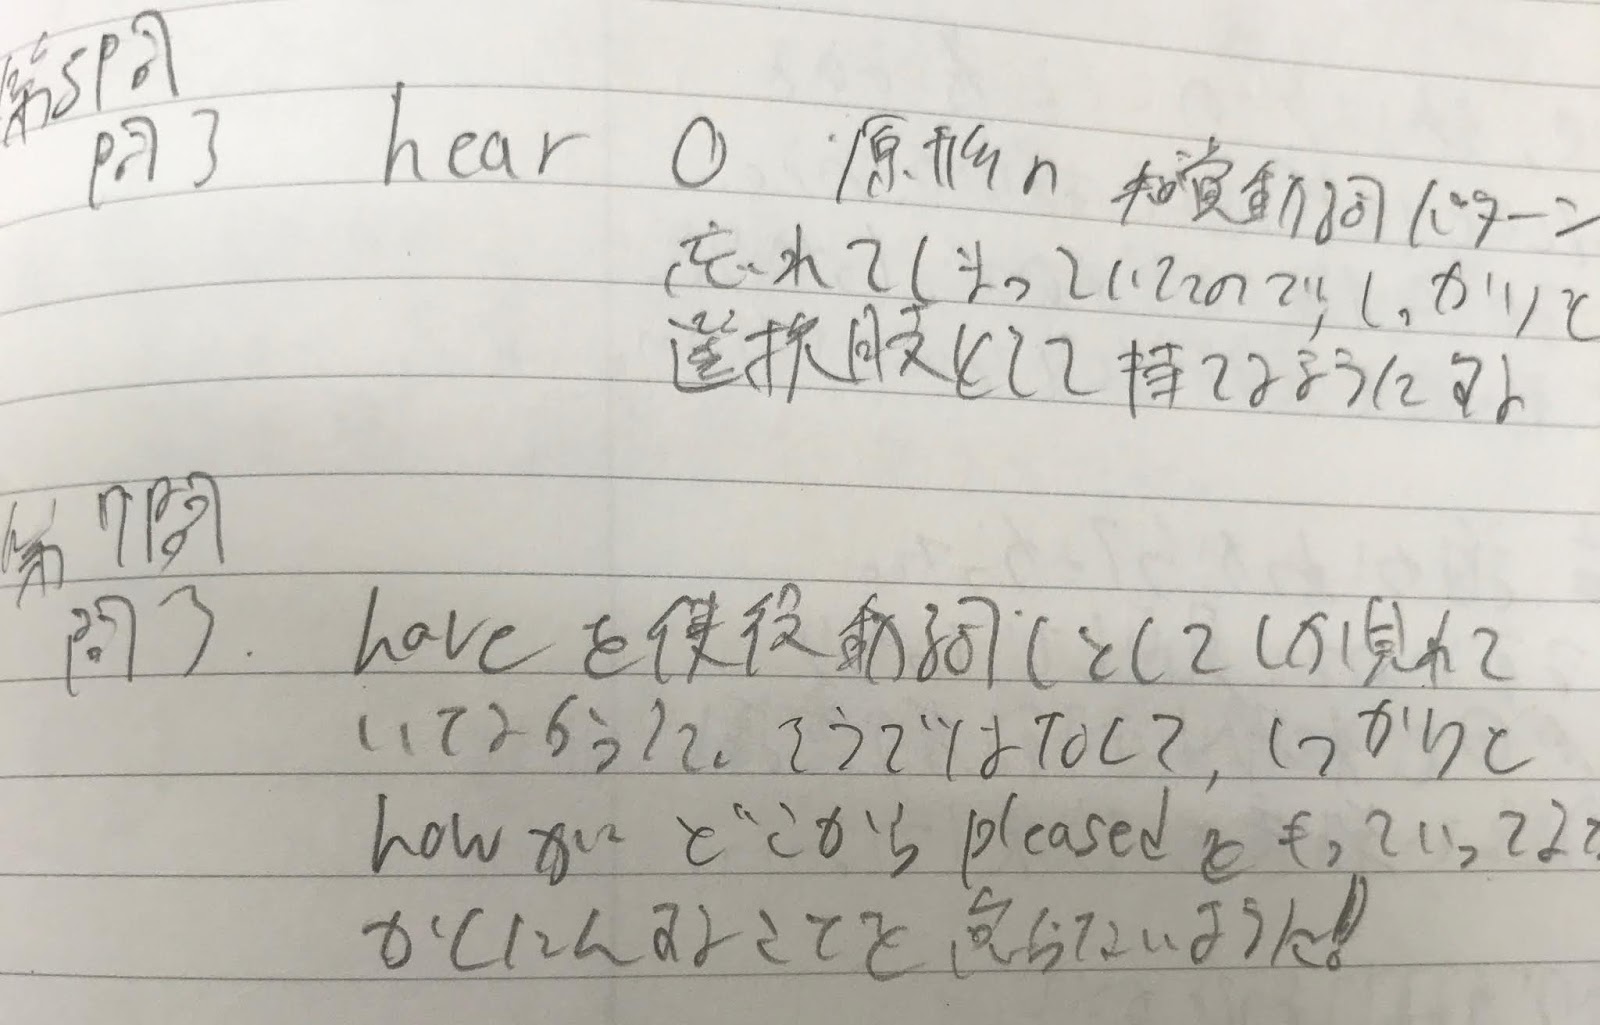 第5問
問3 hear O 原形n 知覚動詞パターン
忘れてしまっていたので、しっかりと
選択肢として持てるようにする
第7問
問3. haveを使役動詞としてしか見れて
いてるから
そうではなくて、しっかりと
howがどこからpleasedをもっていってるか
かくにんすることを怠らないように!